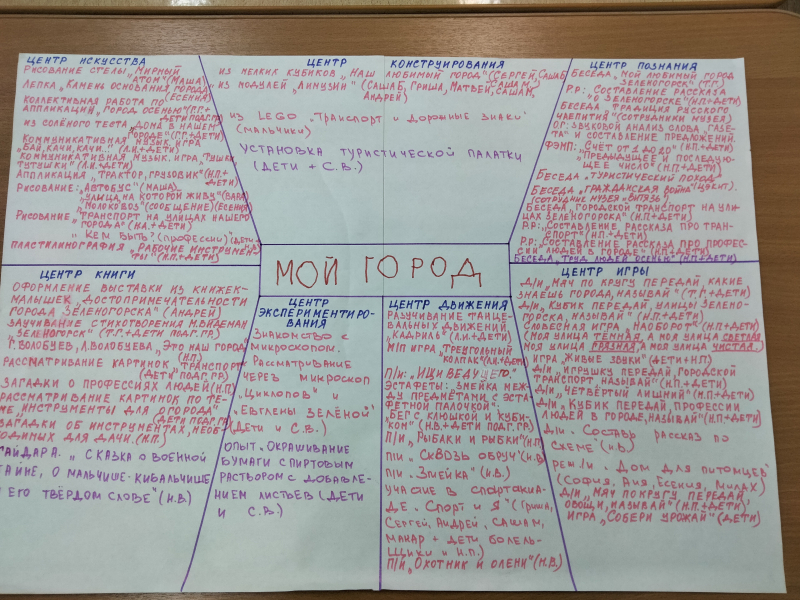 ЦЕНТР ИСКУССТВА
РИСОВАНИЕ СТЕЛЫ „МИРНЫЙ
АТОМ" (МАША)
ЛЕПКА „КАМЕНЬ ОСНОВАНИЯ ГОРОДА"
(ЕСЕНИЯ)
КОЛЛЕКТИВНАЯ РАБОТА ПО
АППЛИКАЦИИ „ГОРОД ОСЕНЬЮ" (Т.Г.+
ДЕТИ ПОДГ.ГР)
ИЗ СОЛЁНОГО ТЕСТА „ДОМА В НАШЕМ
ГОРОДЕ" (Т.Г.+ДЕТИ)
КОММУНИКАТИВНАЯ МУЗЫК. ИГРА
„БАЙ, КАЧИ, КАЧИ..." (Л.И.+ДЕТИ)
КОММУНИКАТИВНАЯ МУЗЫК. ИГРА „ТУШКИ,
ТУТУШКИ" (Л.И.+ДЕТИ)
АППЛИКАЦИЯ „ТРАКТОР, ГРУЗОВИК" (Н.П.+
ДЕТИ)
РИСОВАНИЕ: „АВТОБУС" (МАША)
„УЛИЦА, НА КОТОРОЙ ЖИВУ" (ВАРЯ)
„МОЛОКОВОЗ" (СООБЩЕНИЕ) (ЕСЕНИЯ)
РИСОВАНИЕ „ТРАНСПОРТ НА УЛИЦАХ НАШЕГО
ГОРОДА" (Н.П.+ДЕТИ)
„КЕМ БЫТЬ? (ПРОФЕССИИ)" (ДЕТИ)
ПЛАСТИЛИНОГРАФИЯ „РАБОЧИЕ ИНСТРУМЕН-
ТЫ" (Н.П.+ДЕТИ)
ЦЕНТР КОНСТРУИРОВАНИЯ
ИЗ МЕЛКИХ КУБИКОВ „НАШ ЛЮБИМЫЙ ГОРОД" (СЕРГЕЙ, САША Б,
САША М)
ИЗ МОДУЛЕЙ „ЛИМУЗИН" (САША Б, ГРИША, МАТВЕЙ, САША М,
АНДРЕЙ)
ИЗ LEGO „ТРАНСПОРТ И ДОРОЖНЫЕ ЗНАКИ"
(МАЛЬЧИКИ)
УСТАНОВКА ТУРИСТИЧЕСКОЙ ПАЛАТКИ
(ДЕТИ + С.В.)
ЦЕНТР ПОЗНАНИЯ
БЕСЕДА „МОЙ ЛЮБИМЫЙ ГОРОД
ЗЕЛЕНОГОРСК" (Т.Г.)
Р.Р.: СОСТАВЛЕНИЕ РАССКАЗА
„О ЗЕЛЕНОГОРСКЕ" (Н.П+ДЕТИ)
БЕСЕДА „ТРАДИЦИЯ РУССКОГО
ЧАЕПИТИЯ" (СОТРУДНИКИ МУЗЕЯ)
ОГ: ЗВУКОВОЙ АНАЛИЗ СЛОВА „ГАЗЕ-
ТА" И СОСТАВЛЕНИЕ ПРЕДЛОЖЕНИЙ.
ФЭМП: „СЧЁТ ОТ 1 ДО 20" (Н.П.+ДЕТИ)
„ПРЕДЫДУЩЕЕ И ПОСЛЕДУЮ-
ЩЕЕ ЧИСЛО" (Н.П+ДЕТИ)
БЕСЕДА „ТУРИСТИЧЕСКИЙ ПОХОД"
БЕСЕДА „ГРАЖДАНСКАЯ ВОЙНА"
(СОТРУДНИК МУЗЕЯ „ВИТЯЗЬ")
БЕСЕДА „ГОРОДСКОЙ ТРАНСПОРТ НА УЛИ-
ЦАХ ЗЕЛЕНОГОРСКА" (Н.П+ДЕТИ)
Р.Р: „СОСТАВЛЕНИЕ РАССКАЗА ПРО ТРАН-
СПОРТ" (Н.П+ДЕТИ)
Р.Р: „СОСТАВЛЕНИЕ РАССКАЗА ПРО ПРОФЕС-
СИИ ЛЮДЕЙ В ГОРОДЕ" (Н.П.+ДЕТИ)
БЕСЕДА „ТРУД ЛЮДЕЙ ОСЕНЬЮ" (Н.П+ДЕТИ)
МОЙ ГОРОД
ЦЕНТР КНИГИ
ОФОРМЛЕНИЕ ВЫСТАВКИ ИЗ КНИЖЕК-
МАЛЫШЕК „ДОСТОПРИМЕЧАТЕЛЬНОСТИ
ГОРОДА ЗЕЛЕНОГОРСКА" (АНДРЕЙ)
ЗАУЧИВАНИЕ СТИХОТВОРЕНИЯ М.ВАЙДЕМАН
„ЗЕЛЕНОГОРСК" (Т.Г.+ДЕТИ ПОДГ.ГР)
Г.ВОЛОБУЕВ, Л.ВОЛОБУЕВА „ЭТО НАШ ГОРОД"
(Н.П)
РАССМАТРИВАНИЕ КАРТИНОК „ТРАНСПОРТ"
(ДЕТИ ПОДГ.ГР)
ЗАГАДКИ О ПРОФЕССИЯХ ЛЮДЕЙ (Н.П)
РАССМАТРИВАНИЕ КАРТИНОК ПО ТЕ-
МЕ „ИНСТРУМЕНТЫ ДЛЯ ОГОРОДА"
(ДЕТИ ПОДГ.ГР)
ЗАГАДКИ ОБ ИНСТРУМЕНТАХ, НЕОБ-
ХОДИМЫХ ДЛЯ ДАЧИ. (Н.П)
ГАЙДАР А. „СКАЗКА О ВОЕННОЙ
ТАЙНЕ, О МАЛЬЧИШЕ-КИБАЛЬЧИШЕ
И ЕГО ТВЁРДОМ СЛОВЕ" (Н.В)
ЦЕНТР
ЭКСПЕРИМЕНТИРО-
ВАНИЯ
ЗНАКОМСТВО С
МИКРОСКОПОМ.
РАССМАТРИВАНИЕ
ЧЕРЕЗ МИКРОСКОП
„ЦИКЛОПОВ" И
„ЕВГЛЕНЫ ЗЕЛЁНОЙ"
(ДЕТИ И С.В.)
ОПЫТ „ОКРАШИВАНИЕ
БУМАГИ СПИРТОВЫМ
РАСТВОРОМ С ДОБАВЛЕ-
НИЕМ ЛИСТЬЕВ (ДЕТИ
И С.В.)
ЦЕНТР ДВИЖЕНИЯ
РАЗУЧИВАНИЕ ТАНЦЕ-
ВАЛЬНЫХ ДВИЖЕНИЙ
„КАДРИЛЬ" (Л.И.+ДЕТИ)
М/П ИГРА „ТРЕУГОЛЬНЫЙ
КОЛПАК" (Л.И+ДЕТИ)
П/И: „ИЩИ ВЕДУЩЕГО"
ЭСТАФЕТЫ: „ЗМЕЙКА МЕЖ-
ДУ ПРЕДМЕТАМИ С ЭСТА-
ФЕТНОЙ ПАЛОЧКОЙ".
„БЕГ С КЛЮШКОЙ И КУБИ-
КОМ" (Н.В.+ДЕТИ ПОДГ.ГР)
П/И „РЫБАКИ И РЫБКИ" (Н.П)
П/И „СКВОЗЬ ОБРУЧ" (Н.В)
П/И „ЗМЕЙКА" (Н.В)
УЧАСТИЕ В СПАРТАКИА-
ДЕ „СПОРТ И Я" (ГРИША,
СЕРГЕЙ, АНДРЕЙ, САША М,
МАКАР + ДЕТИ БОЛЕЛЬ-
ЩИКИ И Н.П.)
П/И „ОХОТНИК И ОЛЕНИ" (Н.В.)
ЦЕНТР ИГРЫ
Д/И „МЯЧ ПО КРУГУ ПЕРЕДАЙ, КАКИЕ
ЗНАЕШЬ ГОРОДА, НАЗЫВАЙ" (Т.Г+ДЕТИ)
Д/И „КУБИК ПЕРЕДАЙ, УЛИЦЫ ЗЕЛЕНО-
ГОРСКА, НАЗЫВАЙ" (Н.П+ДЕТИ)
СЛОВЕСНАЯ ИГРА „НАОБОРОТ" (Н.П+ДЕТИ)
(МОЯ УЛИЦА ТЁМНАЯ, А МОЯ УЛИЦА СВЕТЛАЯ,
МОЯ УЛИЦА ГРЯЗНАЯ, А МОЯ УЛИЦА ЧИСТАЯ...)
ИГРА „ЖИВЫЕ ЗВУКИ" (ДЕТИ+Н.П)
Д/И „ИГРУШКУ ПЕРЕДАЙ, ГОРОДСКОЙ
ТРАНСПОРТ НАЗЫВАЙ" (Н.П+ДЕТИ)
Д/И „ЧЕТВЁРТЫЙ ЛИШНИЙ" (Н.П+ДЕТИ)
Д/И „КУБИК ПЕРЕДАЙ, ПРОФЕССИИ
ЛЮДЕЙ В ГОРОДЕ, НАЗЫВАЙ" (Н.П+ДЕТИ)
Д/И „СОСТАВЬ РАССКАЗ ПО
СХЕМЕ" (Н.В)
РЕЖ./И. „ДОМ ДЛЯ ПИТОМЦЕВ"
(СОФИЯ, АНЯ, ЕСЕНИЯ, МИЛАХ)
Д/И „МЯЧ ПО КРУГУ ПЕРЕДАЙ,
ОВОЩИ, НАЗЫВАЙ" (Н.П+ДЕТИ)
ИГРА „СОБЕРИ УРОЖАЙ" (ДЕТИ)